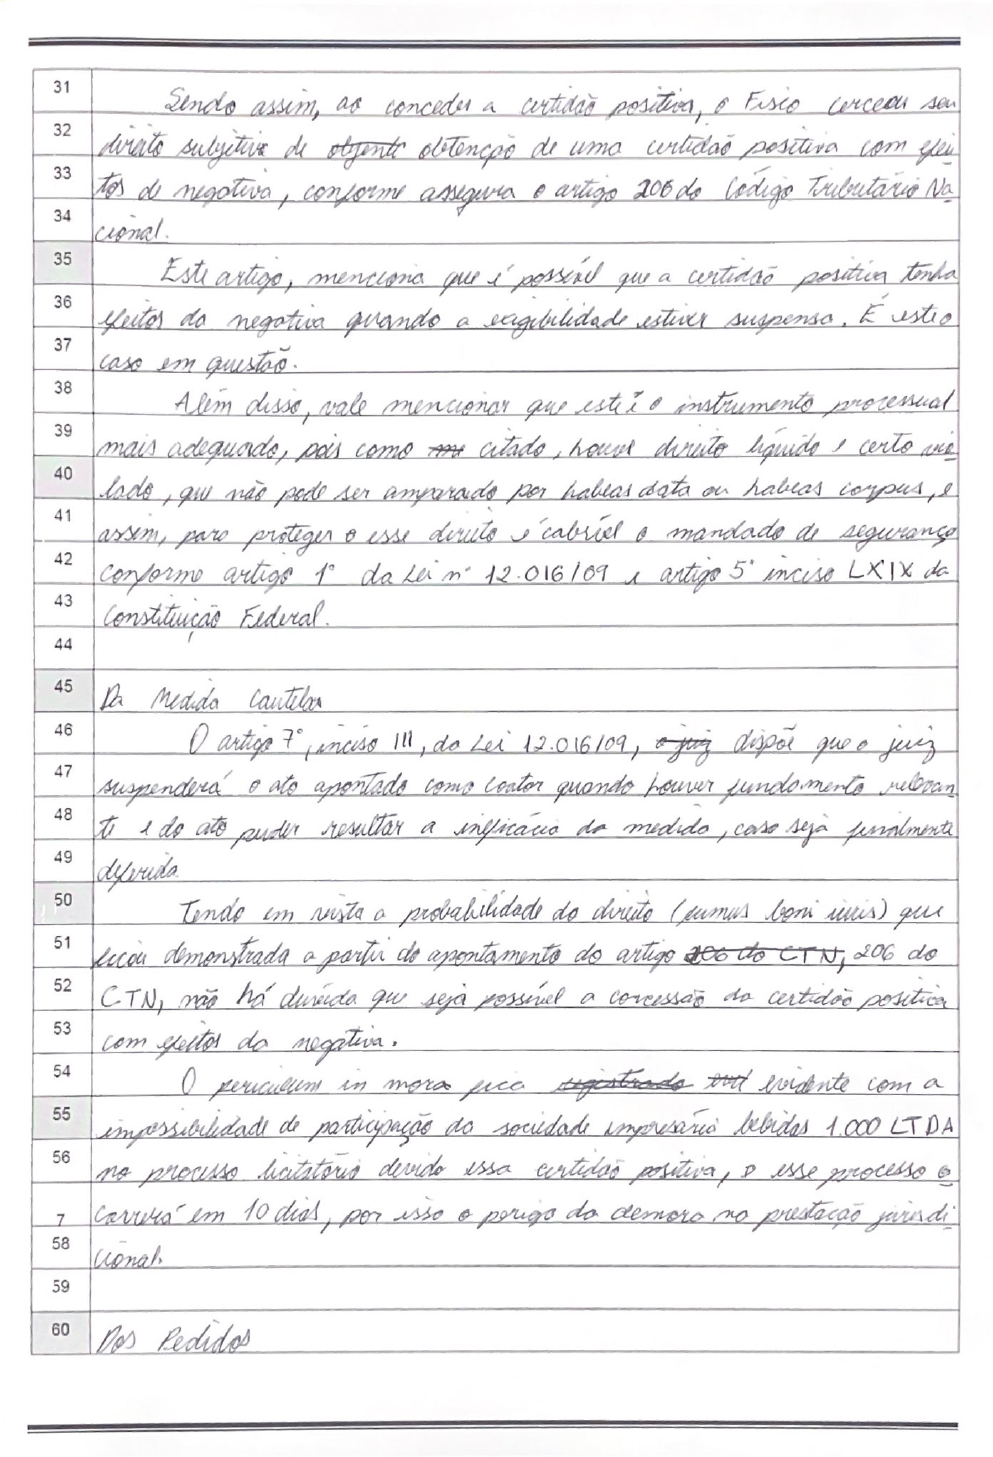 31 Sendo assim, ao conceder a certidão positiva, o Fisco cerceou seu
32 direito subjetivo de objento obtenção de uma certidão positiva com efei
33 tos de negativa, conforme assegura o artigo 206 do Código Tributário Na-
34 cional.
35 Este artigo, menciona que é possível que a certidão positiva tenha
36 efeitos da negativa quando a exigibilidade estiver suspensa. É este o
37 caso em questão.
38 Além disso, vale mencionar que este é o instrumento processual
39 mais adequado, pois como citado, houve direito líquido e certo vio-
40 lado, que não pode ser amparado por habeas data ou habeas corpus, e
41 assim, para proteger o esse direito é cabível o mandado de segurança
42 conforme artigo 1° da Lei n° 12.016/09 e artigo 5° inciso LXIX da
43 Constituição Federal.
44
45 Da Medida Cautelar
46 O artigo 7°, inciso III, da Lei 12.016/09, o juiz dispõe que o juiz
47 suspenderá o ato apontado como coator quando houver fundamento relevan
48 te e do ato puder resultar a ineficácia da medida, caso seja finalmente
49 deferida
50 Tendo em vista a probabilidade do direito (fumus boni iuris) que
51 ficou demonstrada a partir do apontamento do artigo 206 do CTN, 206 do
52 CTN, não há dúvida que seja possível a concessão da certidão positiva
53 com efeitos da negativa.
54 O periculum in mora fica registrado evid evidente com a
55 impossibilidade de participação da sociedade empresária bebidas 1.000 LTDA
56 no processo licitatório devido essa certidão positiva, e esse processo o
7 correrá em 10 dias, por isso o perigo da demora na prestação jurisdi-
58 cional.
59
60 Dos Pedidos